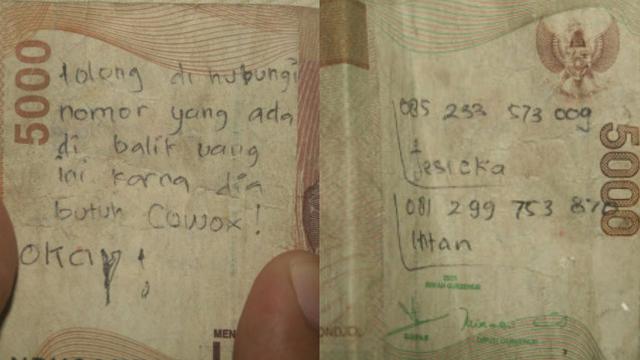 5000
tolong di hubungi
nomor yang ada
di balik uang
ini karna dia
butuh Cowox!
okay!
MEN
085 233 573 009
Jesicka
081 299 753 870
Intan
5000
DEWAN GUBERNUR
DEPUTI GUBERNUR